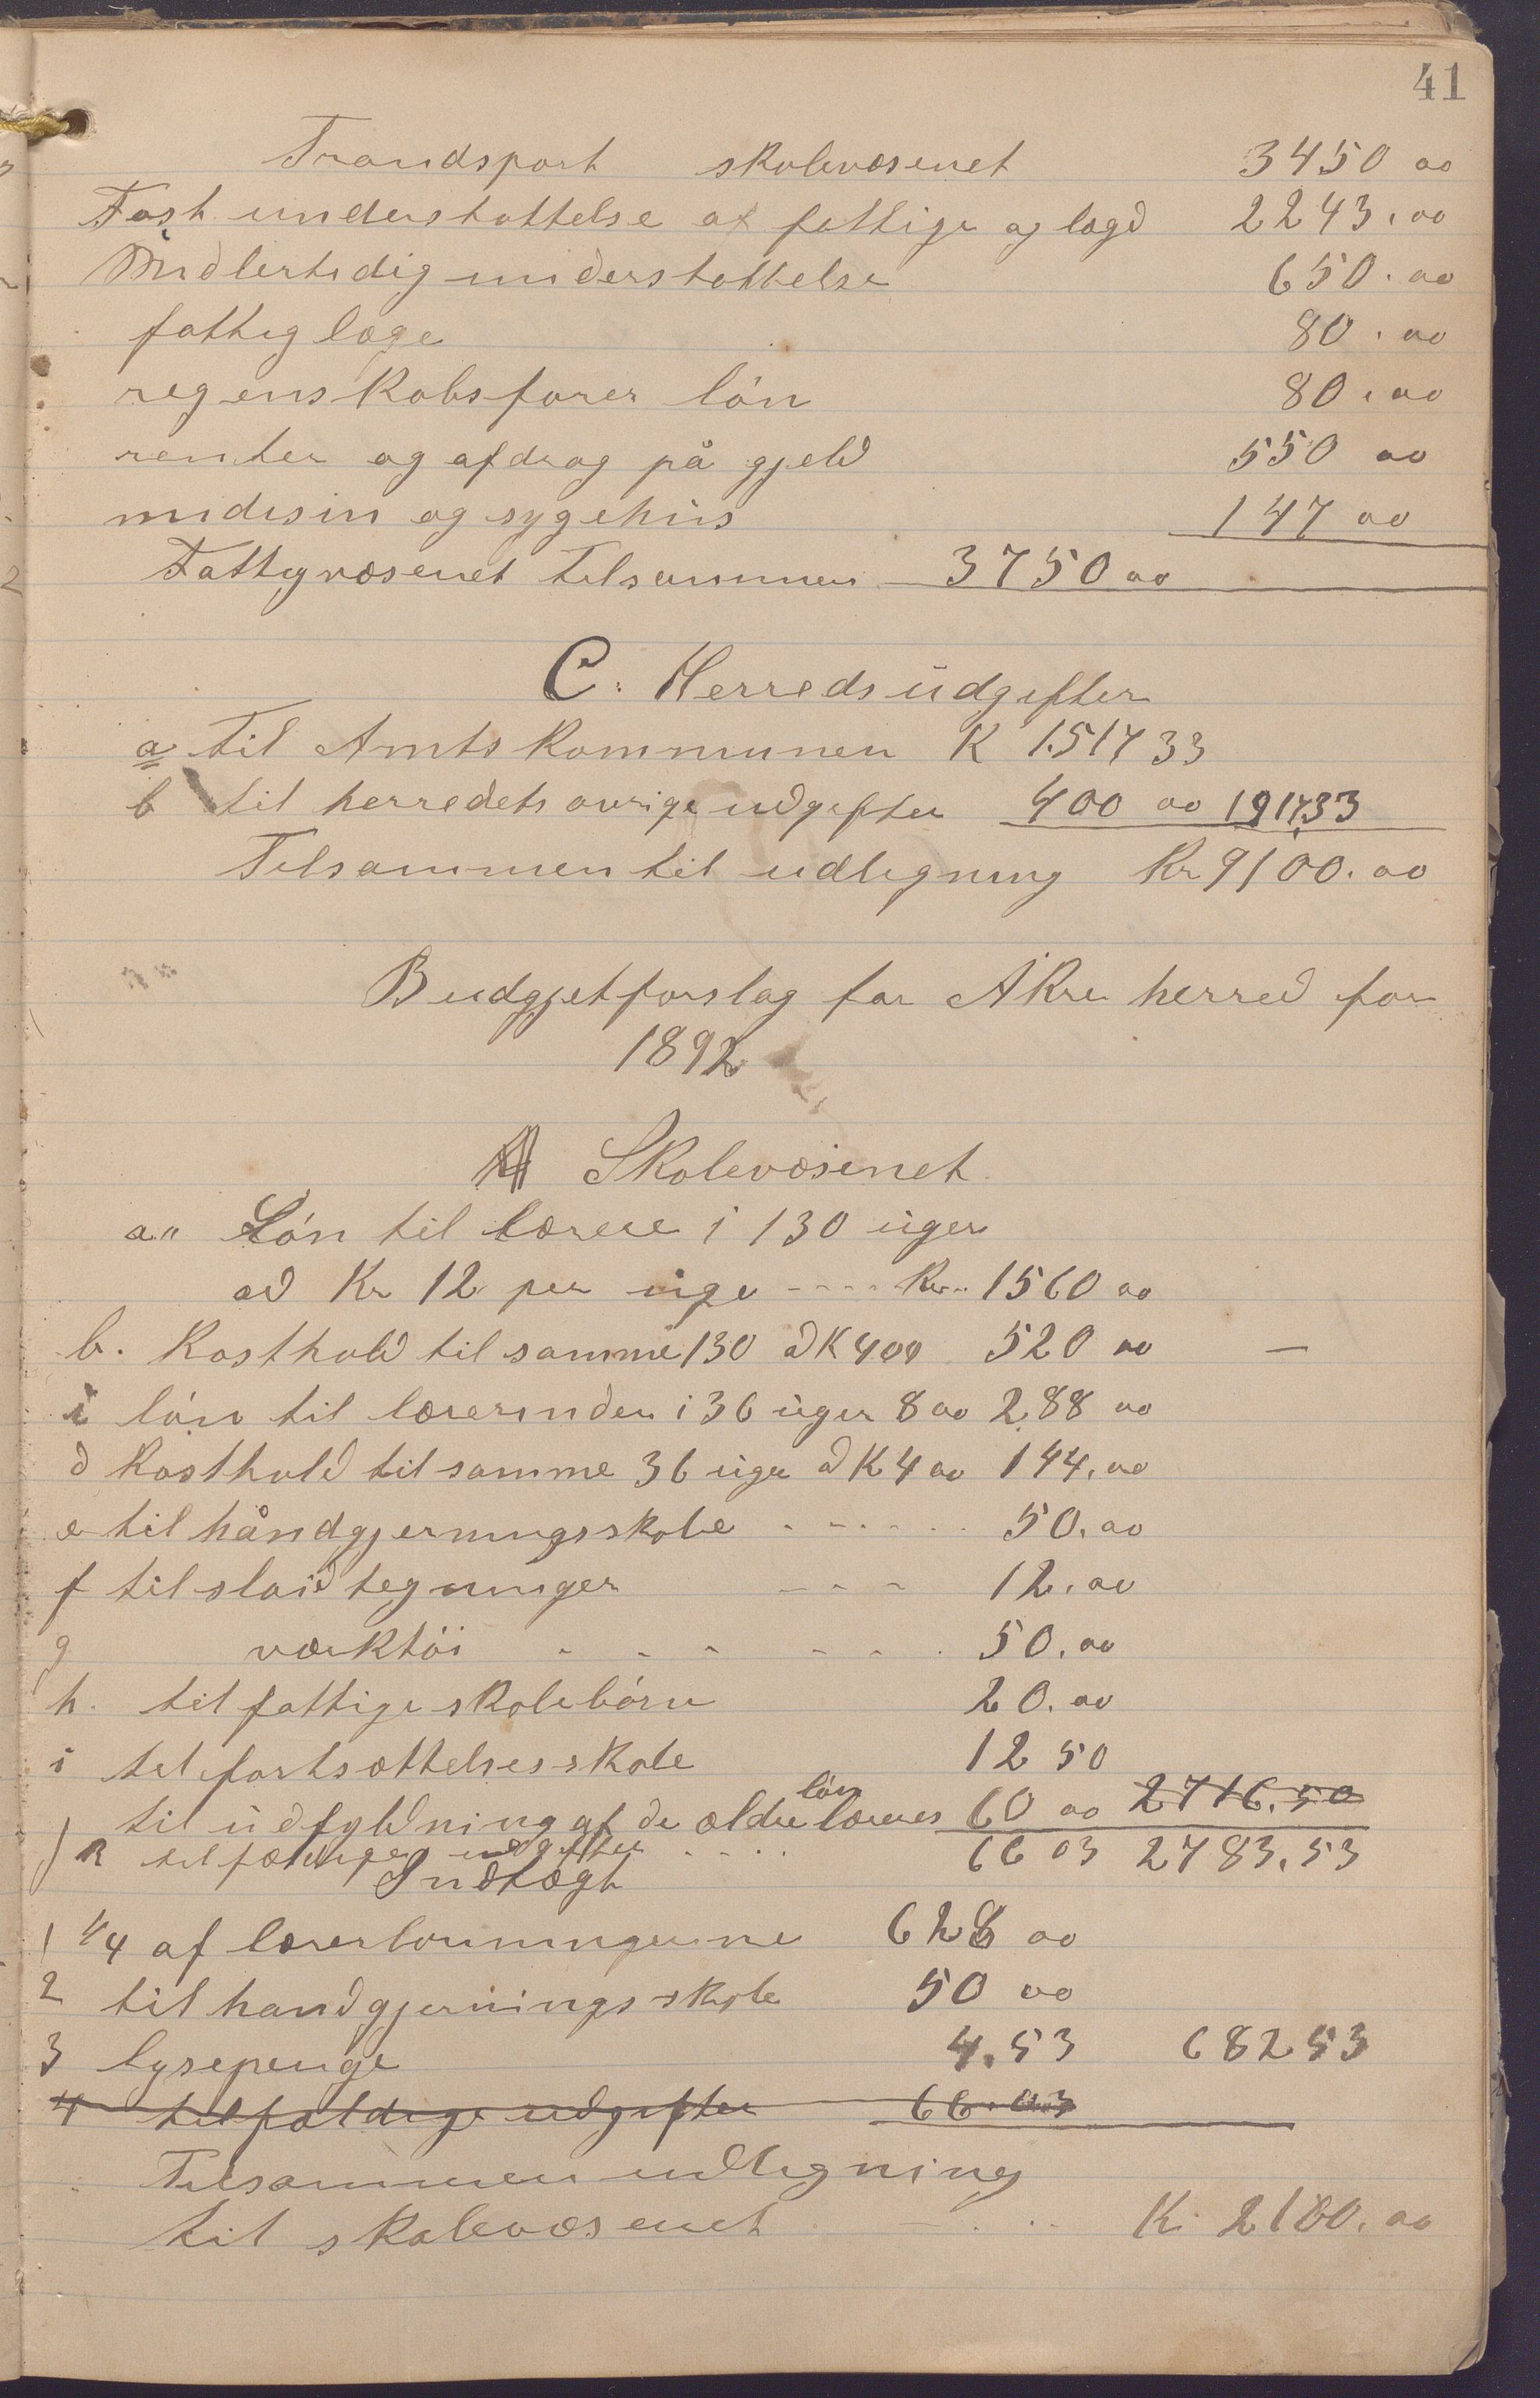 41
Trandsport skolevæsenet 3450 00
Fast understøttelse af fattige og lægd 2243.00
Midlertidig understøttelse 650.00
fattiglæge 80.00
regenskabsfører lön 80.00
renter og afdrag på gjeld 550 00
midisin og sygehus 147 00
Fattigvæsenet Tilsammen 3750 00
C. Herredsudgifter
a Til Amtskommunen K 1517 33
b til herredets øvrige udgifter 400 00 1917.33
Tilsammen til udligning Kr 9100.00
Budgjetforslag for Åkre herred for
1892
A Skolevæsenet
a" Lön til lærere i 130 uger
ad Kr 12 per uge ---- Kr. 1560 00
b. Kosthold til samme 130 a K 400 520 00 —
lön til lærerinden i 36 uger 8 00 288 00
d Kosthold til samme 36 uger a K 4 00 144.00
e til håndgjerningsskole ------ 50.00
f til sløid tegninger --- 12.00
g værktöi ------ 50.00
h. til fattige skolebörn 20.00
i til fortsættelsesskole 12 50
j til udfyldning af de ældre læreres lön 60 00 2716.50
k tilfældige udgifter .... 66 03 2783.53
Indtægt
1 1/4 af lærerlønningerne 628 00
2 til handgjerningsskole 50 00
3 lysepenge 4.53 682 53
4 tilfældige udgifter 66.03
Tilsammen udligning
til skolevæsenet K 2100.00